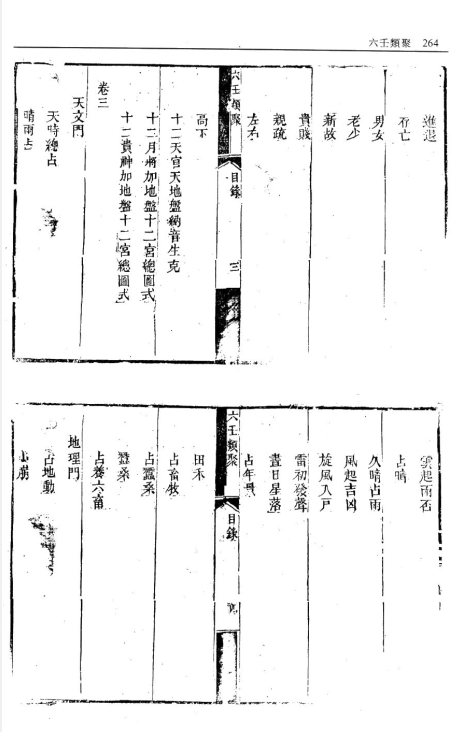 六壬類聚 264
進退
存亡
男女
老少
新故
貴賤
親疏
左右
六壬類聚 目錄 三
高下
十二天官天地盤納音生克
十二月將加地盤十二宮總圖式
十二貴神加地盤十二宮總圖式
卷三
天文門
天時總占
晴雨占
雲起雨否
占晴
久晴占雨
風起吉凶
旋風入戶
雷初發聲
晝日星落
占年
六壬類聚 目錄
田禾
占畜牧
占蠶桑
蠶桑
占養六畜
地理門
占地動
崩